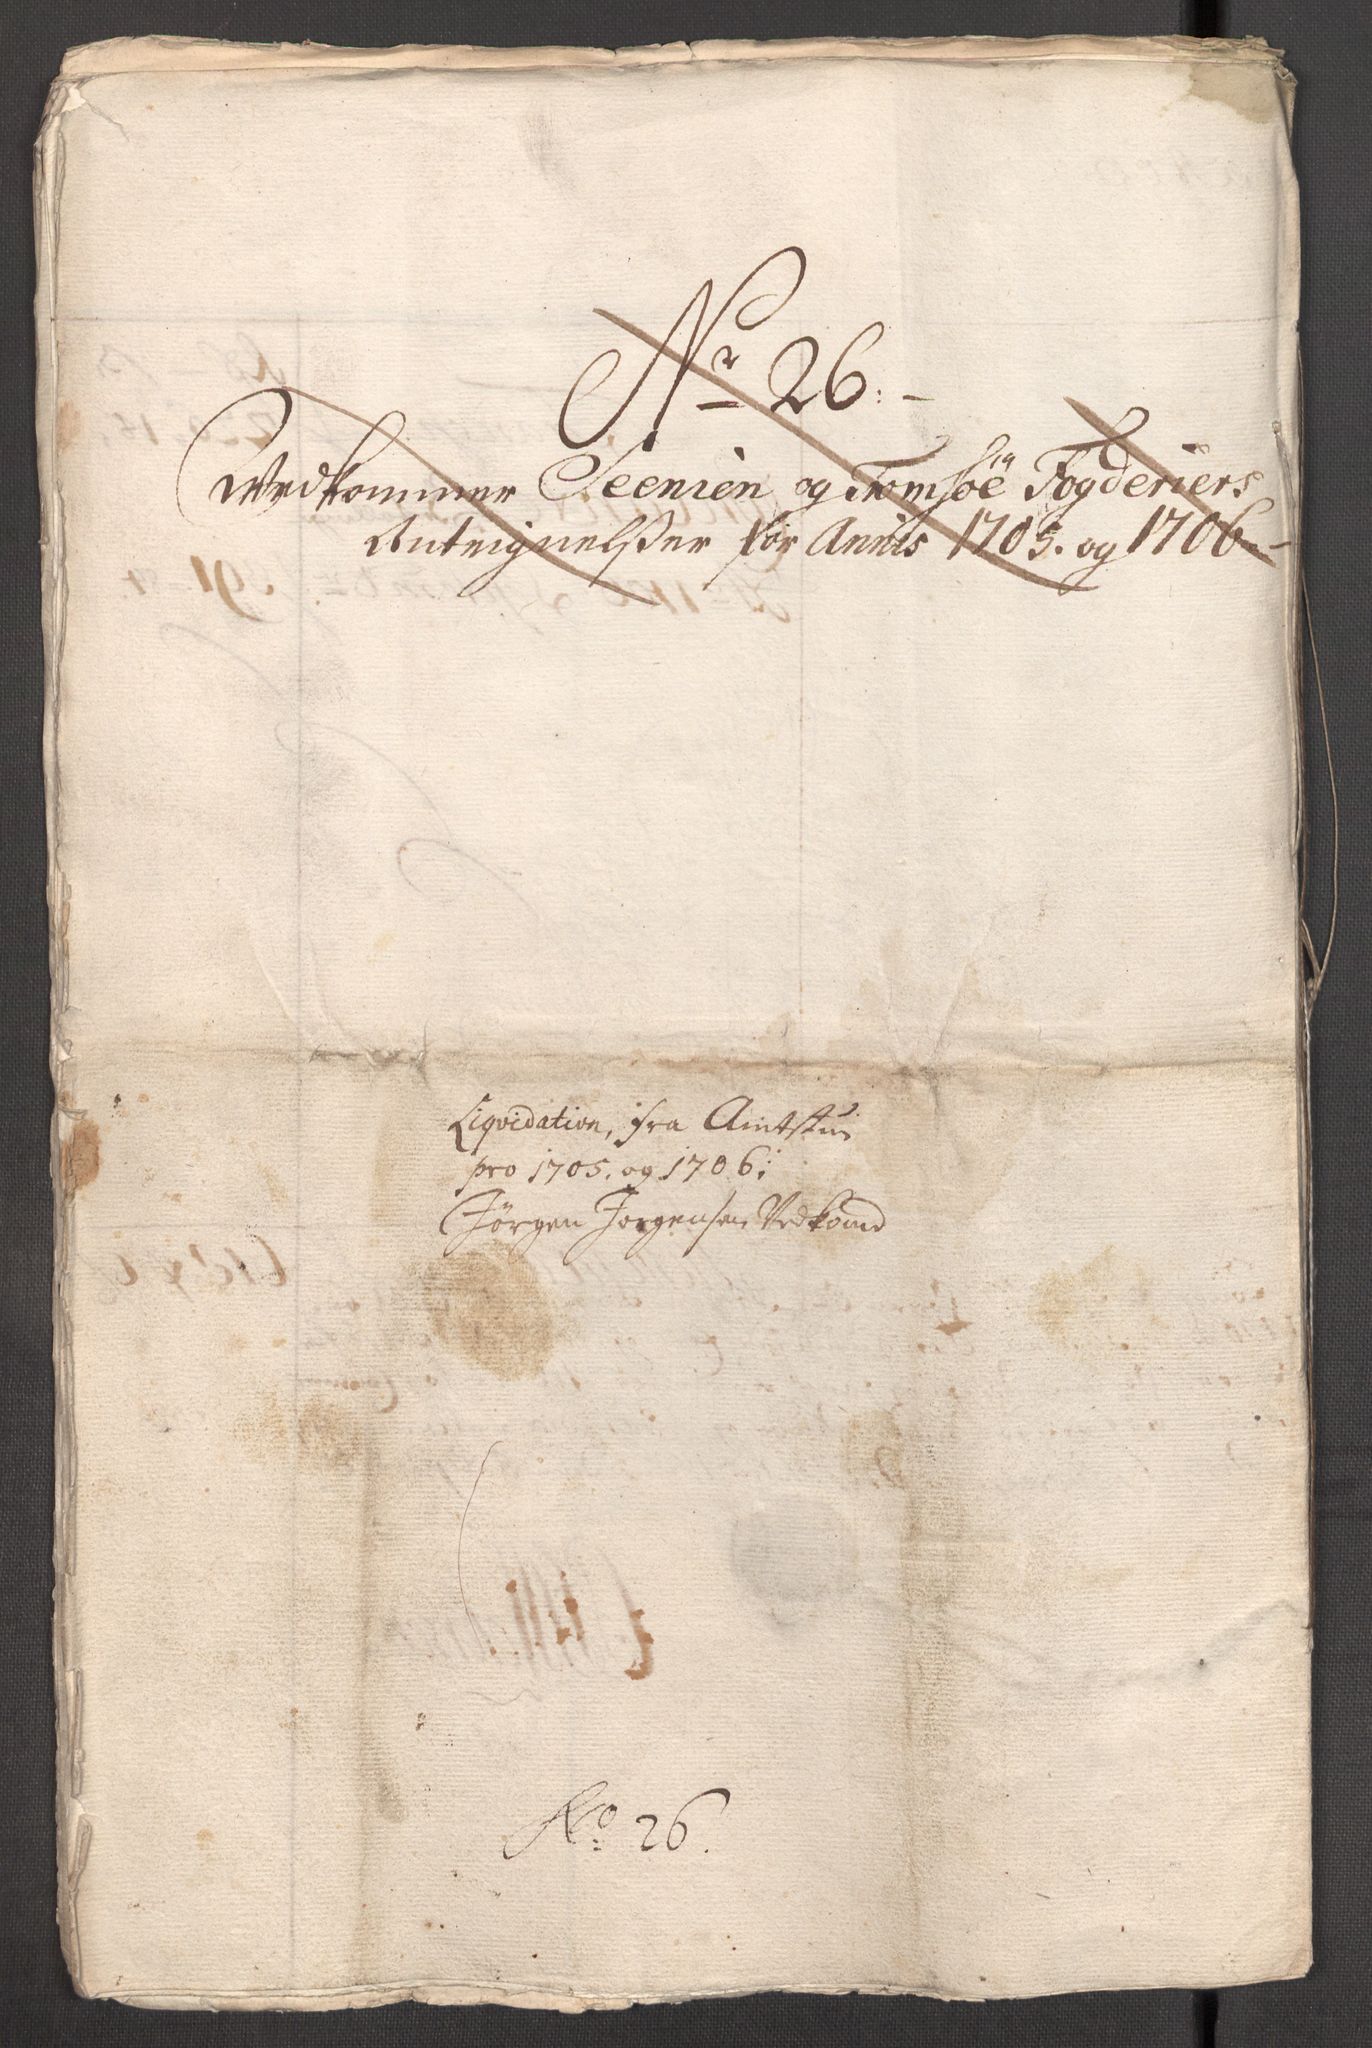 No 26.
Vedkommer Seenien og Tromsöe Fogderiers
Anteignelsser for Annis 1705. og 1706
Liqvidation, fra Amtstu
pro 1705. og 1706;
Jörgen Jörgensen Vedkomd
No 26.